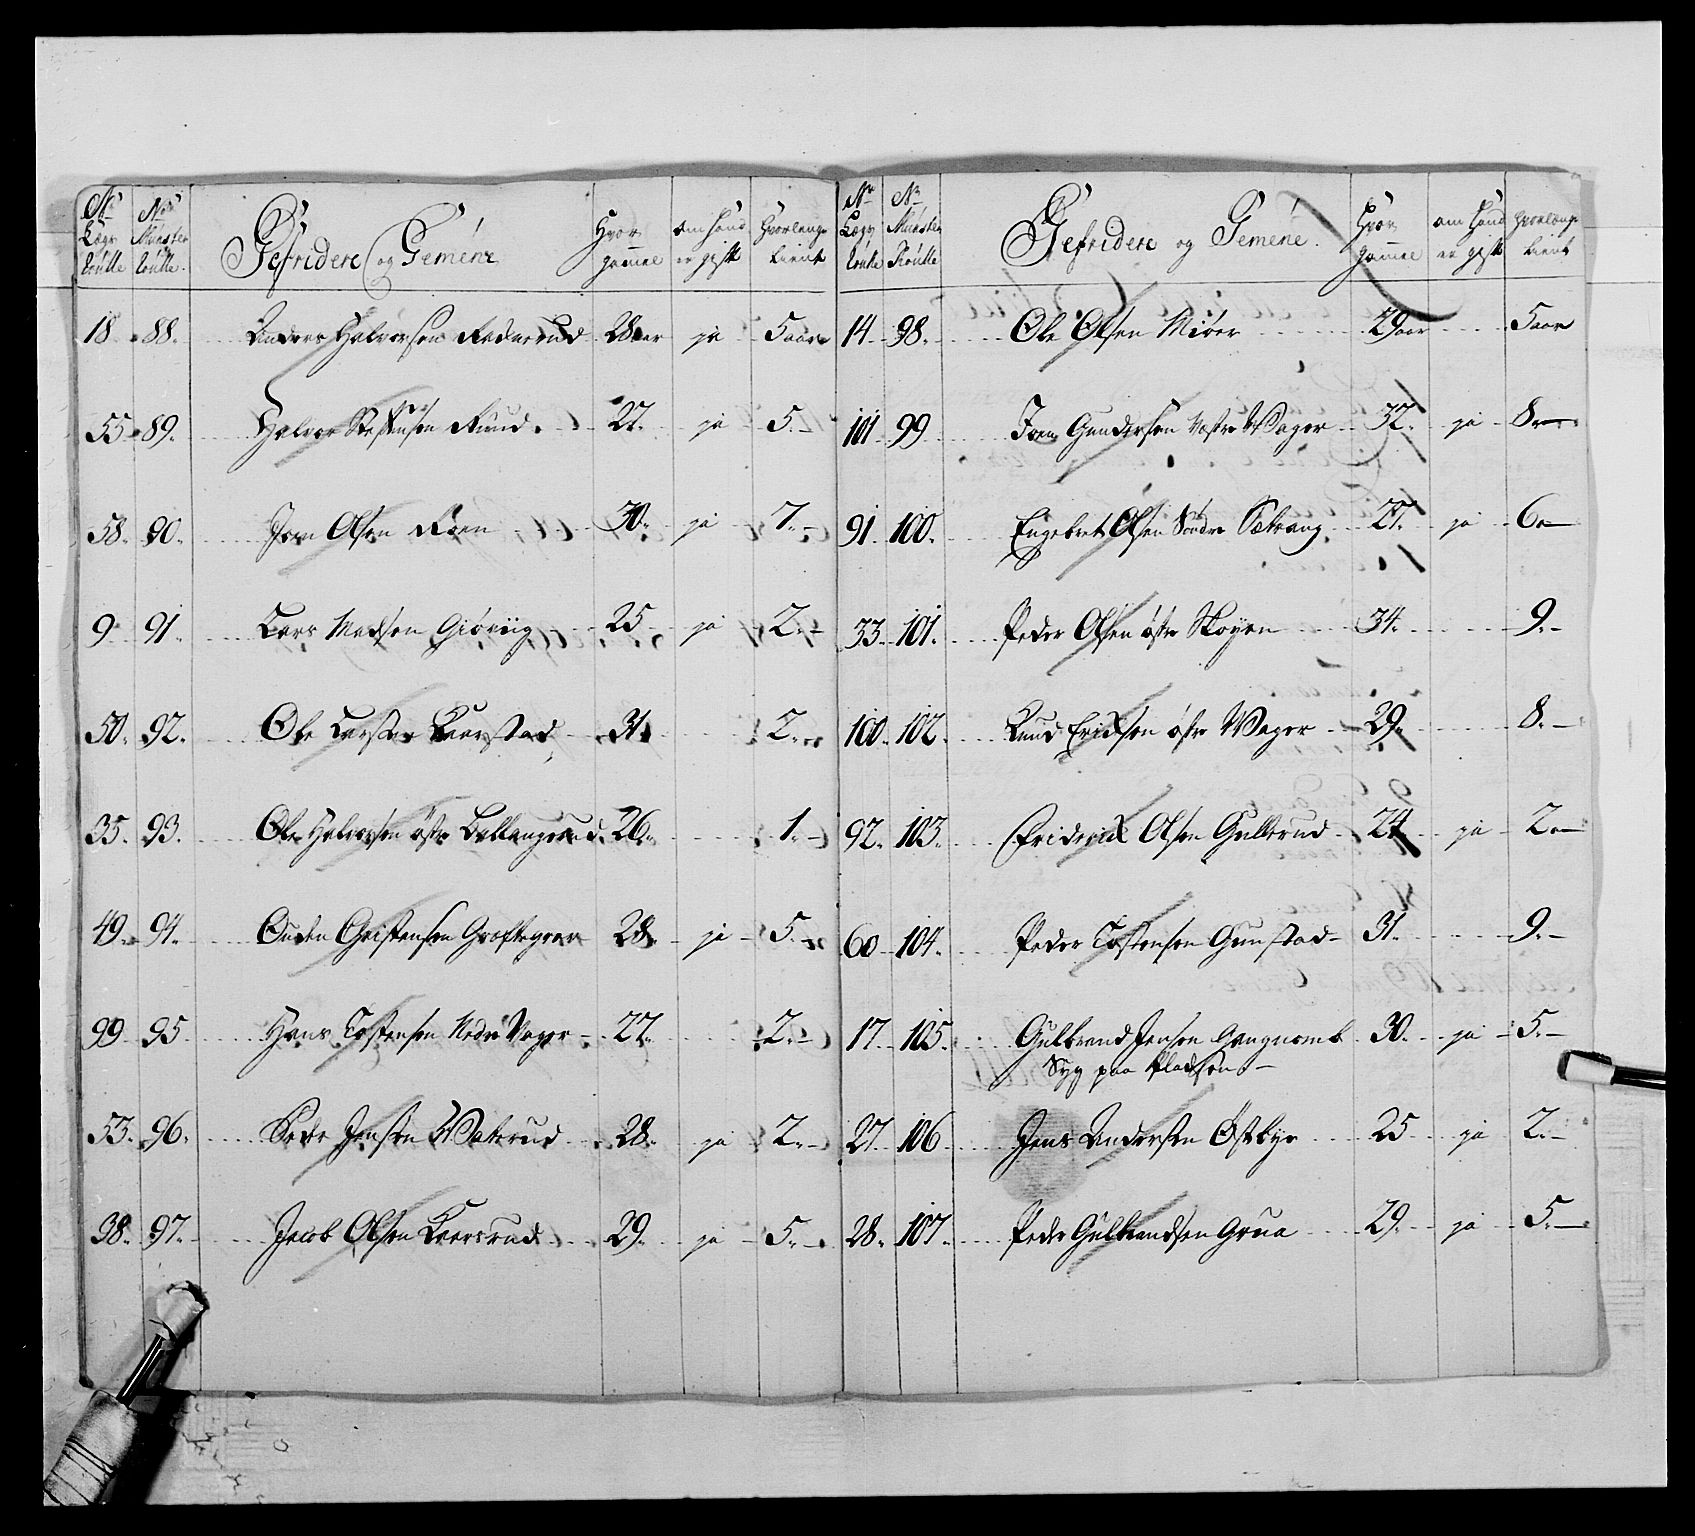 No Lægs Roulle | No Münster Roulle. | Gefridere og Gemene | Hvor gammel | om hand er gift | Hvorlænge tient
18. 88. Anders Halvorsen Rednerud 28 aar ja 5 aar
55. 89. Halvor Steffensen Ruud. 27. ja 5.
58. 90. Joen Olsen Roen 30. ja 7.
9. 91. Lars Madsen Giøviig 25 ja 2.
50. 92. Ole Larsen Kaarstad 31. 2.
35. 93. Ole Halvorsen østre Ballangrud. 26. 1.
49. 94. Ouden Christensen Grøftegrav 28. ja 5.
99. 95. Hans Tostensen Nedre Vager 27. 2.
53. 96. Peder Jensen Waterud 28. ja 2.
38. 97. Jacob Olsen Kaarsrud 29. ja 5.
No Lægs Roulle | No Münster Roulle | Gefridere og Gemene. | Hvor gammel | om hand er gift | Hvorlænge tient
14. 98. Ole Olsen Miøer 29 aar 5 aar
101. 99. Joen Gundersen Vestre Wager 32. ja 8.
91. 100. Engebret Olsen Søndre Sætrang. 27. ja 6.
33. 101. Peder Olsen østre Skøyen 34. 9.
100. 102. Knud Erichsen østre Wager 29. 8.
92. 103. Friderich Olsen Gulterud 24 ja 2.
60. 104. Peder Tostensen Gunstad 31. 9.
17. 105. Gulbrand Jensen 30. ja 5.
Syg paa Pladsen
27. 106. Jens Andersen Østbye 25 ja 2.
28. 107. Peder Gulbrandsen Grua 29. ja 5.